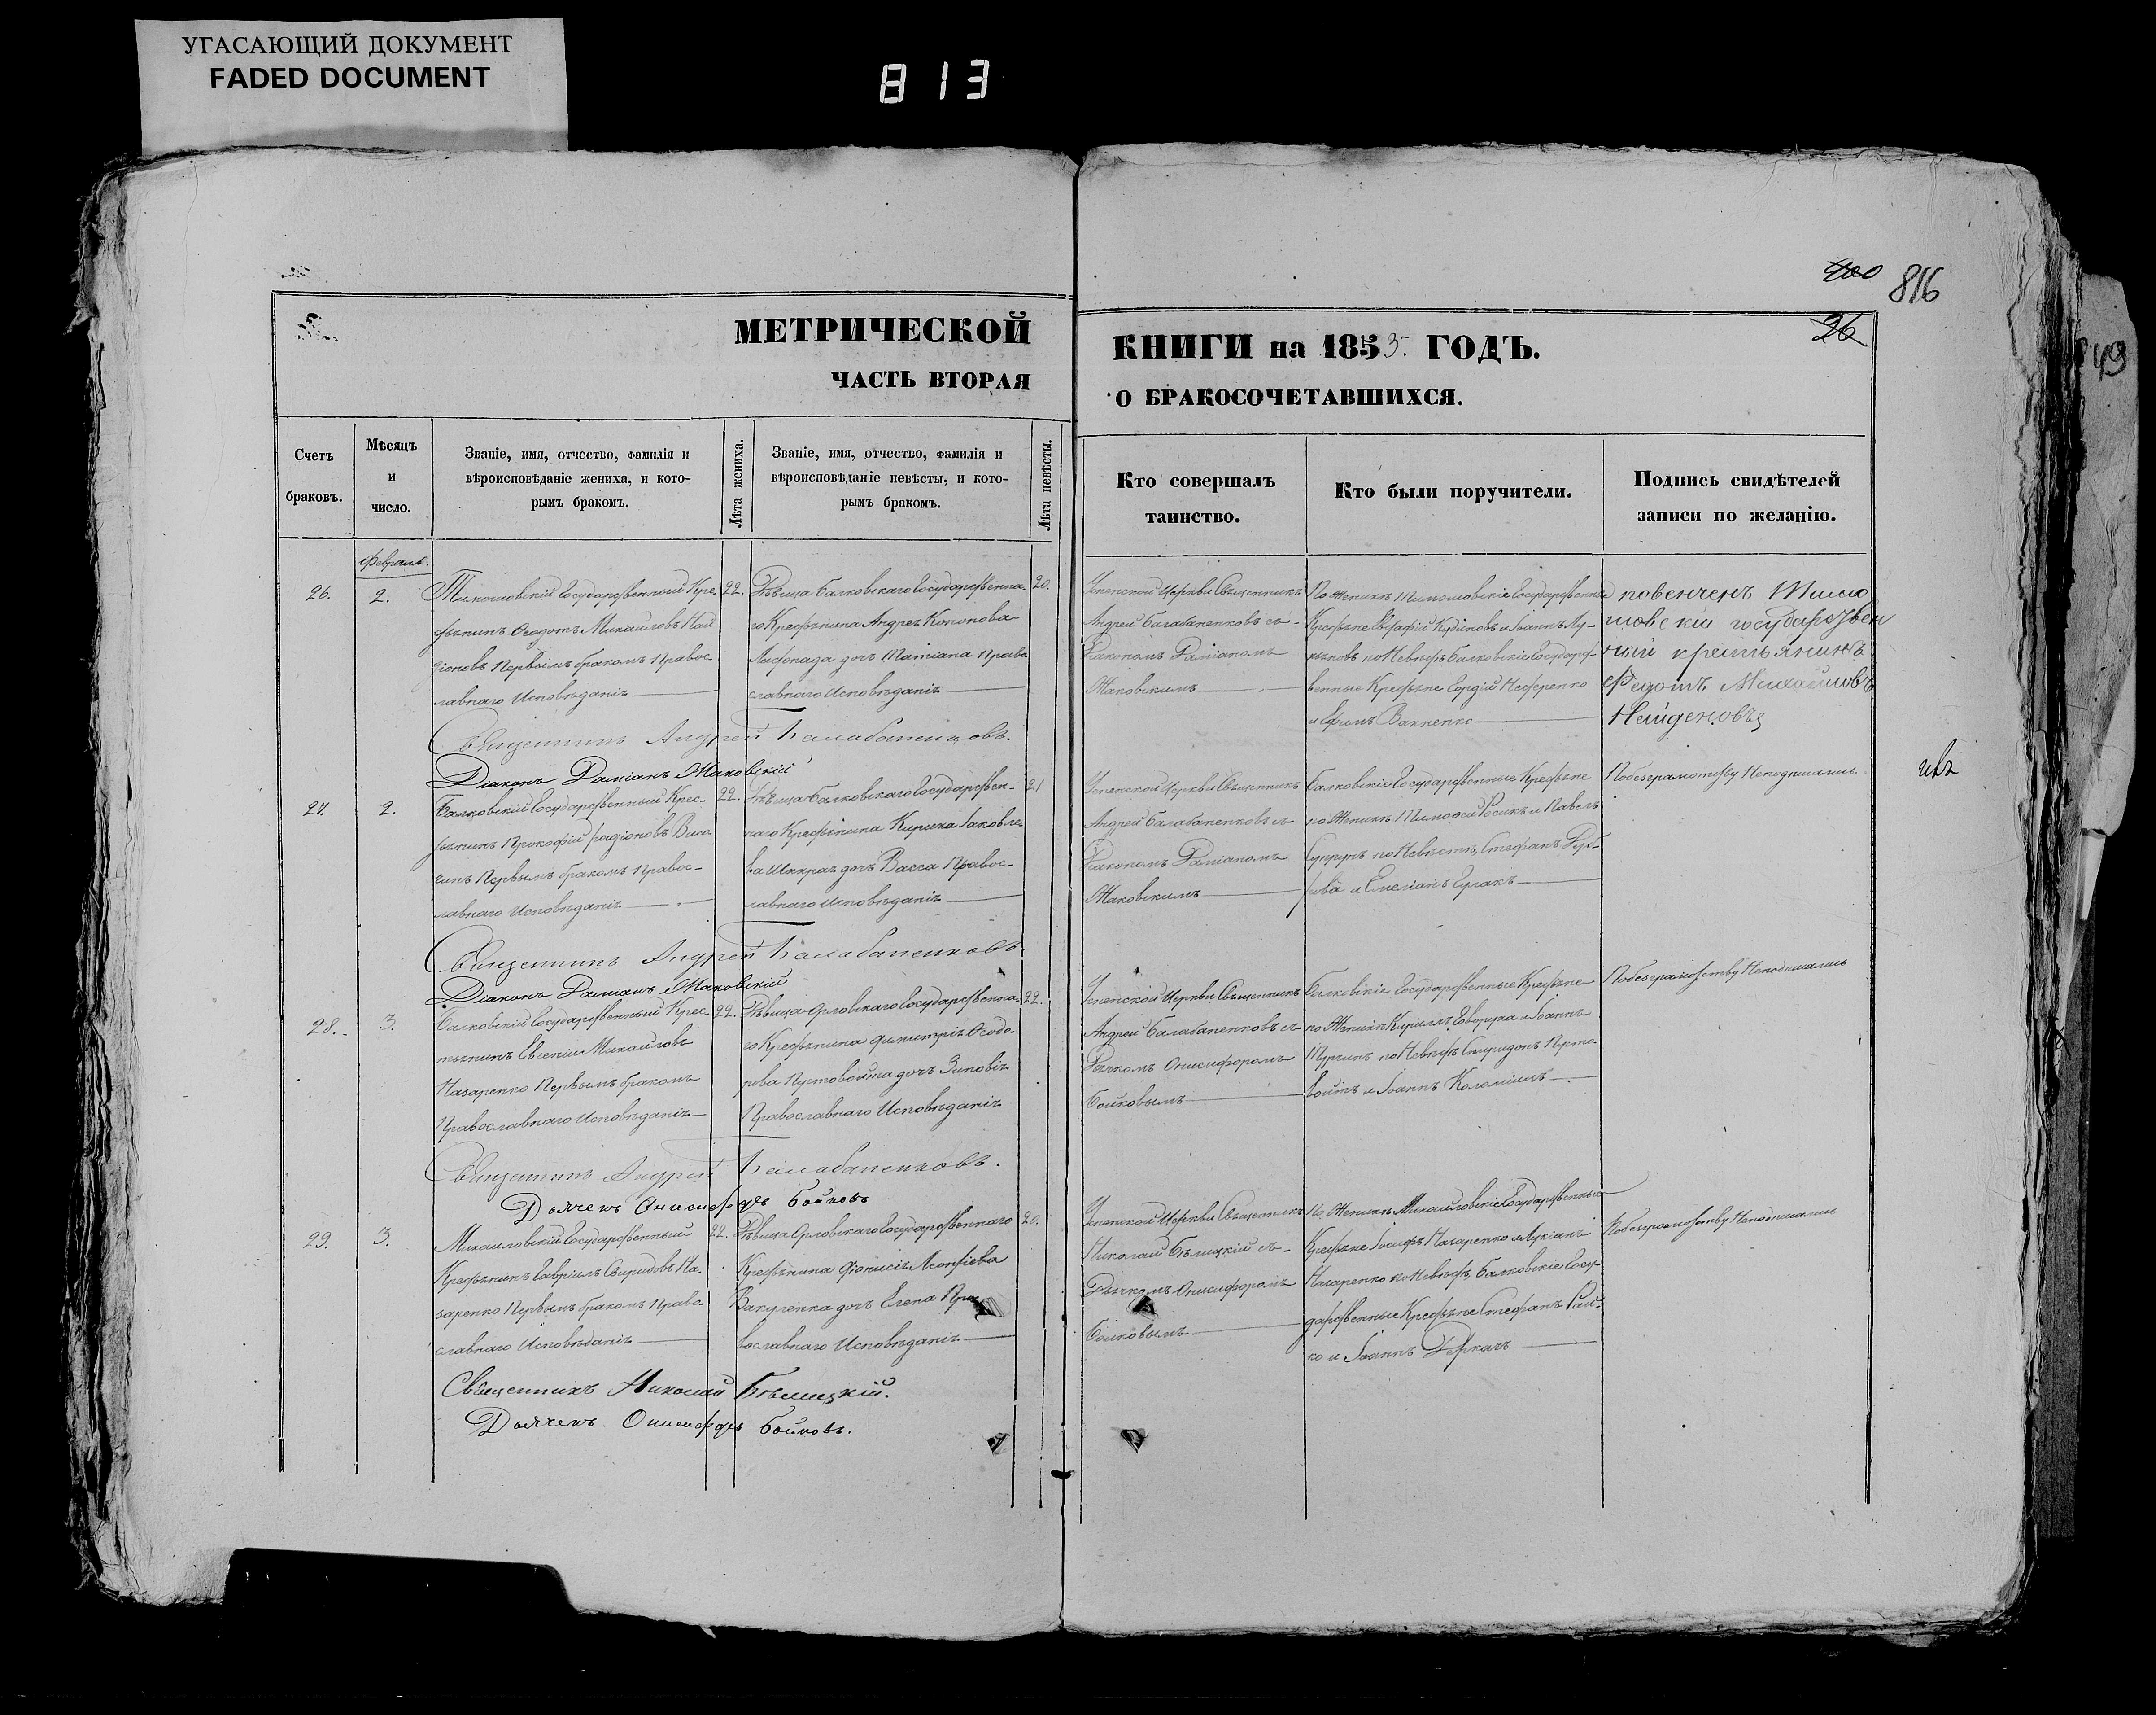 УГАСАЮЩИЙ ДОКУМЕНТ
FADED DOCUMENT
813
400
816
26
49
МЕТРИЧЕСКОЙ
КНИГИ на 1853. ГОДЪ.
ЧАСТЬ ВТОРАЯ
О БРАКОСОЧЕТАВШИХСЯ.
Счетъ
браковъ.
Мѣсяцъ
и
число.
Званіе, имя, отчество, фамилія и
вѣроисповѣданіе жениха, и кото-
рымъ бракомъ.
Лѣта жениха.
Званіе, имя, отчество, фамилія и
вѣроисповѣданіе невѣсты, и кото-
рымъ бракомъ.
Лѣта невѣсты.
Кто совершалъ
таинство.
Кто были поручители.
Подпись свидѣтелей
записи по желанію.
Февраль.
26.
2.
Государственный Кре-
стьянинъ Ѳеодотъ Михаиловъ Най
деновъ Первымъ бракомъ Правос
лавнаго Исповѣданія
22.
Дѣвица Балковскаго Государственна-
го Крестьянина Андрея Кононова
дочь Татіана Право
славнаго Исповѣданія
20.
Успенской Церкви Священникъ
Андрей Балабаненковъ съ
Діакономъ Даміаномъ
Маковскимъ
По Женихѣ Государственные
Крестьяне и Іоаннъ
по Невѣстѣ Балковскіе Государст-
венные Крестьяне
и Ефимъ
повенченъ Тимо
шовскій государствен
ний крестьянинъ
Федотъ Михайловъ
Найденовъ
Священникъ Андрей Балабаненковъ.
Діаконъ Даміанъ Маковскій
27.
2.
Балковскій Государственный Крес-
тьянинъ Прокофій Радіоновъ
Первымъ бракомъ Правос-
лавнаго Исповѣданія
22.
Дѣвица Балковскаго Государствен-
наго Крестьянина Кирика Іаковле-
ва дочь Васса Правос-
лавнаго Исповѣданія
21
Успенской Церкви Священникъ
Андрей Балабаненковъ съ
Діакономъ Даміаномъ
Маковскимъ
Балковскіе Государственные Крестьяне
по Женихѣ Тимофей и Павелъ
Супрунъ по Невѣстѣ, Стефанъ
и Емеліанъ
По безграмотству Неподписались.
Священникъ Андрей Балабаненковъ.
Діаконъ Даміанъ Маковскій
28.
3.
Балковскій Государственный Крес-
тьянинъ Евгеній Михаиловъ
Назаренко Первымъ бракомъ
Православнаго Исповѣданія
22.
Дѣвица Орловскаго Государственна-
го Крестьянина Димитрія Ѳеодо-
рова Пустовойта дочь Зиновія
Православнаго Исповѣданія
22.
Успенской Церкви Священникъ
Андрей Балабаненковъ съ
Дьячкомъ Онисифоромъ
Бойковымъ
Балковскіе Государственные Крестьяне
по Женихѣ Кириллъ и Іоаннъ
по Невѣстѣ Спиридонъ Пусто-
войтъ и Іоаннъ Коломіецъ
По безграмотству Неподписались
Священникъ Андрей Балабаненковъ.
Дьячекъ Онисифоръ Бойковъ
29.
3.
Михаиловскій Государственный
Крестьянинъ Гавріилъ Свиридовъ На-
заренко Первымъ бракомъ Право-
славнаго Исповѣданія
22.
Дѣвица Орловскаго Государственнаго
Крестьянина Діонисія Леонтіева
Вакуленка дочь Елена Пра-
вославнаго Исповѣданія
20.
Успенской Церкви Священникъ
Николай Бѣлицкій съ
Дьячкомъ Онисифоромъ
Бойковымъ
По Женихѣ Михаиловскіе Государственные
Крестьяне Іосифъ Назаренко и Лукіанъ
Назаренко по Невѣстѣ, Балковскіе Госу-
дарственные Крестьяне Стефанъ
ко и Іоаннъ Деркачъ
По безграмотству Неподписались
Священникъ Николай Бѣлицкій.
Дьячекъ Онисифоръ Бойковъ.